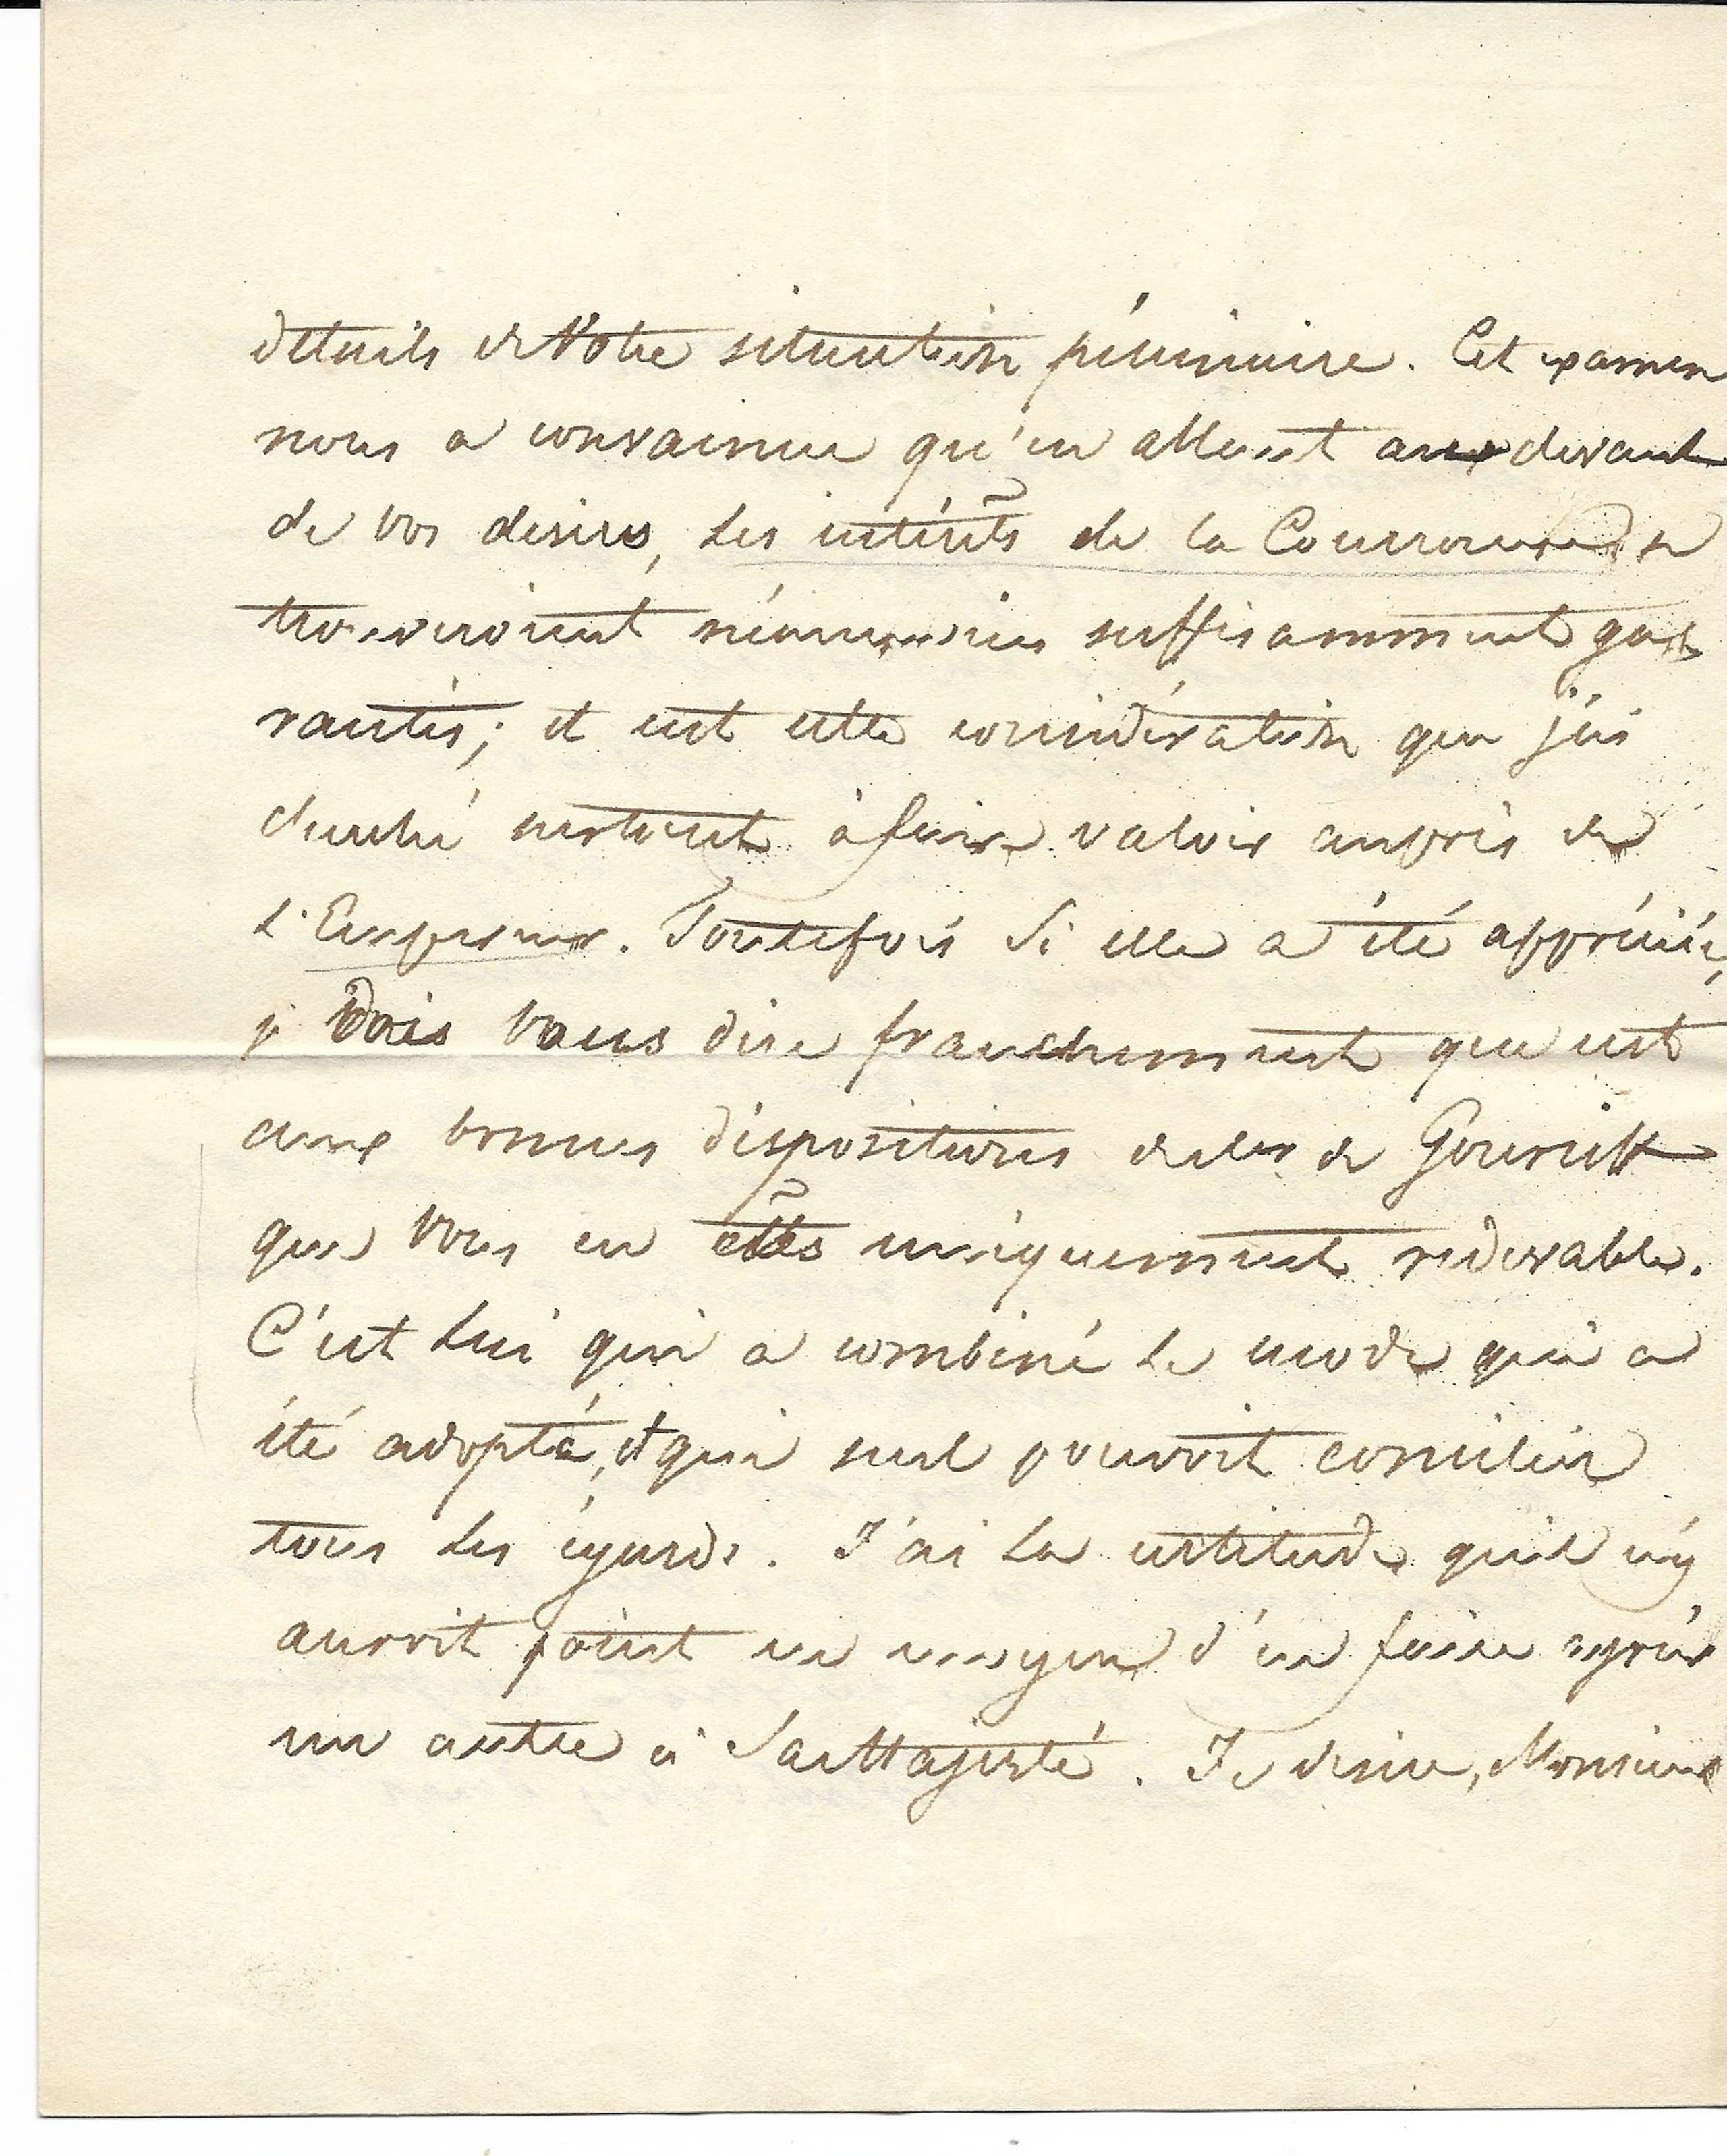 details de Votre situation pécuniaire. Cet examen
nous a convaincu qu'en allant au devant
de vos desirs, les intérêts de la Couronne se
trouveroient néanmoins suffisamment ga-
rantis; et c'est cette considération que j'ai
cherché surtout à faire valoir auprès de
L'Empereur. Toutefois si elle a été appréciée,
je dois vous dire franchement que c'est
aux bonnes dispositions de Mr de Gourieff
que vous en êtes uniquement redevable.
C'est Lui qui a combiné le mode qui a
été adopté, et qui seul pouvoit concilier
tous les égards. J'ai la certitude qu'il n'y
auroit point eu moyen d'en faire agréer
un autre à Sa Majesté. Je desire, Monsieur